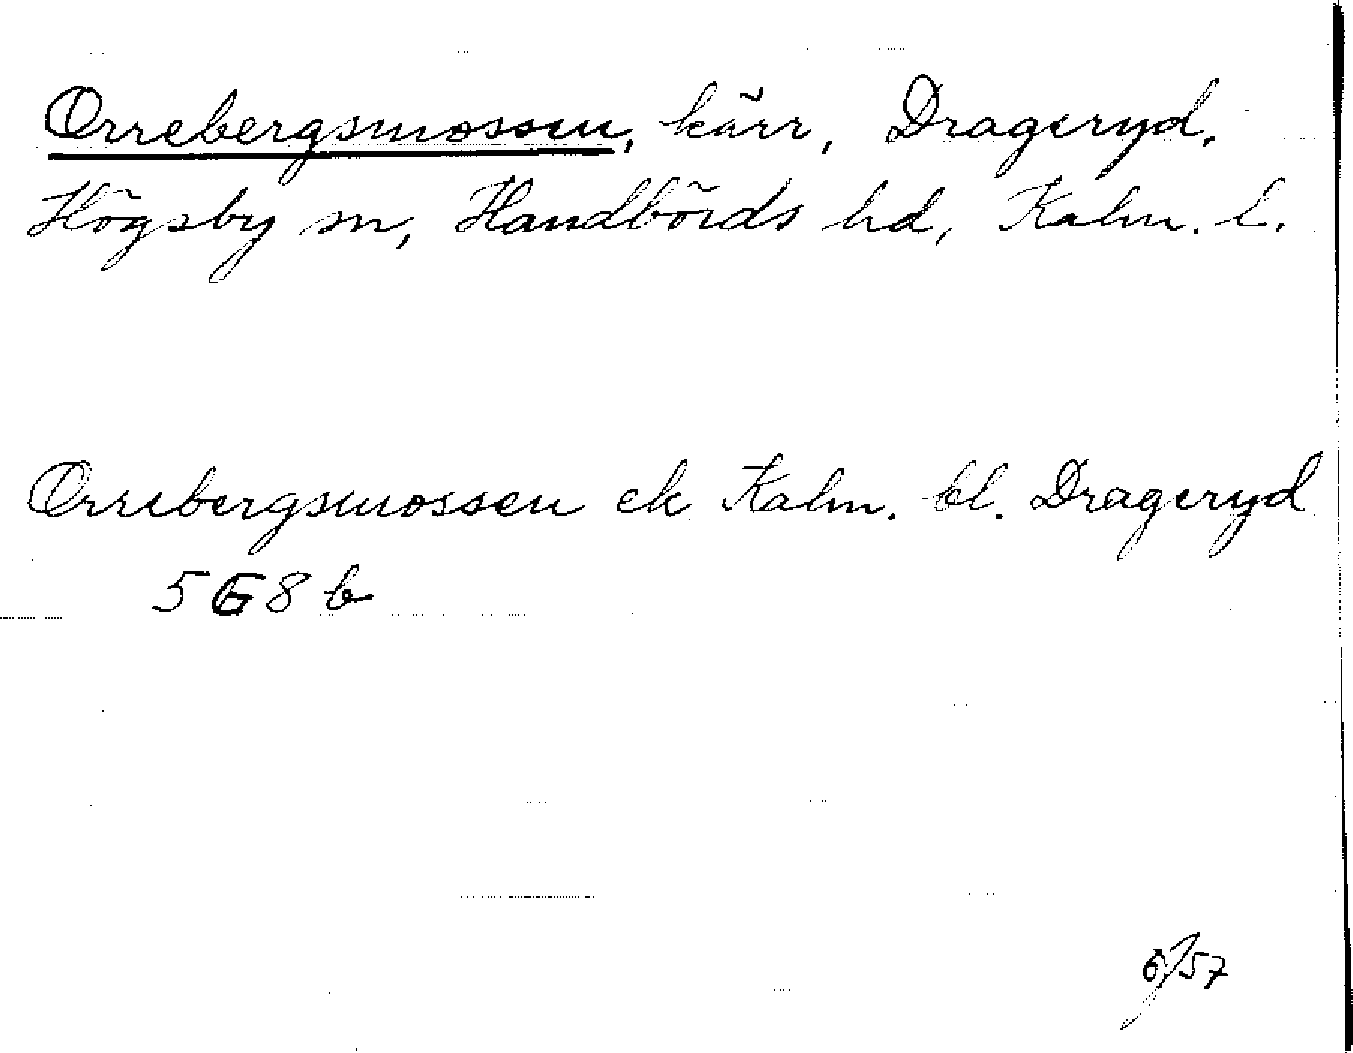 Orrebergsmossen, kärr, Drageryd,
Högsby sn, Handbörds hd, Kalm. l.
Orrebergsmossen ek Kalm. bl. Drageryd
5G8b
6/57